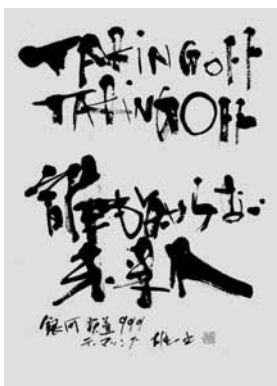 TAKING OFF
TAKING OFF
誰も知らない
未来へ
銀河鉄道999
テーマソング